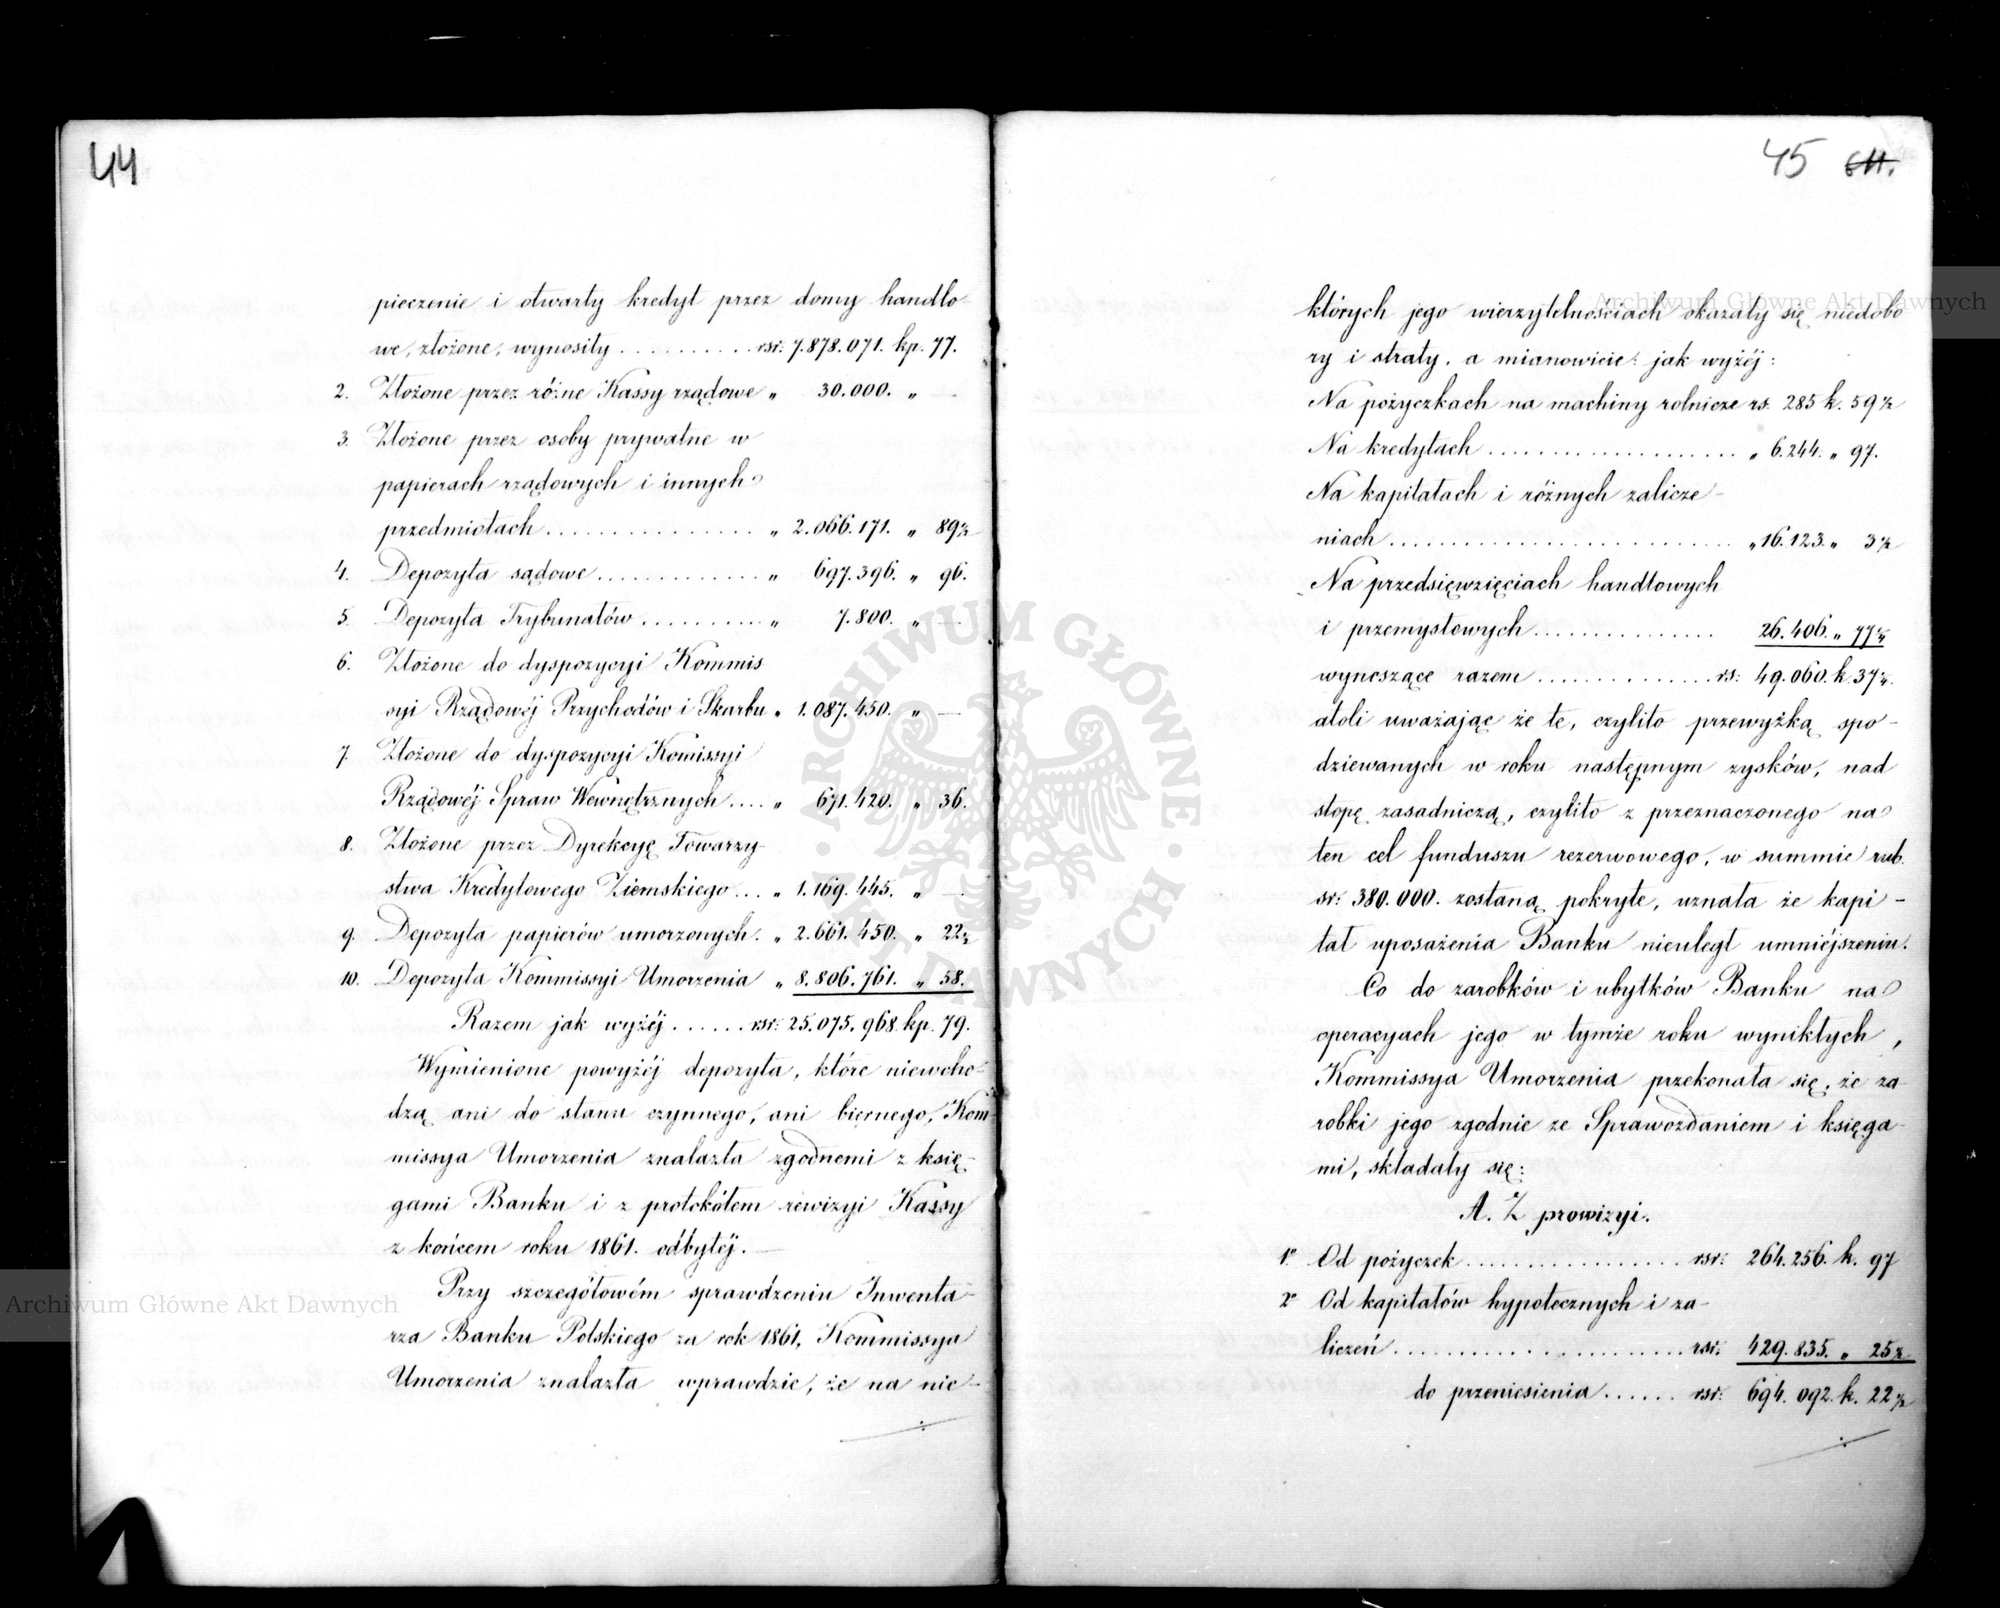 44
pieczenie i otwarty kredyt przez domy handlo-
we, złożone, wynosiły ........... rsr: 7.878.071. kp. 77.
2. Złożone przez różne Kassy rządowe „ 30.000. „ —
3. Złożone przez osoby prywatne w
papierach rządowych i innych
przedmiotach ................ „ 2.066.171. „ 89½
4. Depozyta sądowe .............. „ 697.396. „ 96.
5. Depozyta Trybunałów .......... „ 7.800. „ —
6. Złożone do dyspozycyi Kommis
syi Rządowéj Przychodów i Skarbu „ 1.087.450. „ —
7. Złożone do dyspozycyi Komissyi
Rządowéj Spraw Wewnętrznych .... „ 671.420. „ 36.
8. Złożone przez Dyrekcyę Towarzy-
stwa Kredytowego Ziemskiego ... „ 1.169.445. „ —
9. Depozyta papierów umorzonych. „ 2.661.450. „ 22½
10. Depozyta Kommissyi Umorzenia „ 8.806.761. „ 58.
Razem jak wyżéj ...... rsr: 25.075.968. kp. 79.
Wymienione powyżéj depozyta, które niewcho-
dzą ani do stanu czynnego, ani biernego, Kom-
missya Umorzenia znalazła zgodnemi z księ-
gami Banku i z protokółem rewizyi Kassy
z końcem roku 1861. odbytéj. —
Przy szczegółowém sprawdzeniu Inwenta-
rza Banku Polskiego za rok 1861, Kommissya
Umorzenia znalazła wprawdzie, że na nie-
45
których jego wierzytelnościach okazały się niedobo
ry i straty, a mianowicie: jak wyżéj:
Na pożyczkach na machiny rolnicze rs. 285 k. 59½
Na kredytach .................... „ 6.244. „ 97.
Na kapitałach i różnych zalicze-
niach ........................... „ 16.123. „ 3½
Na przedsięwzięciach handlowych
i przemysłowych ............... 26.406. „ 77½
wynoszące razem .............. rs: 49.060. k. 37½.
atoli uważając że te, czylito przewyżką spo-
dziewanych w roku następnym zysków, nad
stopę zasadniczą, czylito z przeznaczonego na
ten cel funduszu rezerwowego, w summie rub.
sr: 380.000. zostaną pokryte, uznała że kapi-
tał uposażenia Banku nieuległ umniéjszeniu.
Co do zarobków i ubytków Banku na
operacyach jego w tymże roku wynikłych,
Kommissya Umorzenia przekonała się, że za-
robki jego zgodnie ze Sprawozdaniem i księga-
mi, składały się:
A. Z prowizyi.
1º Od pożyczek .................. rsr: 264.256. k. 97
2º Od kapitałów hypotecznych i za-
liczeń ........................ rsr: 429.835. „ 25½
do przeniesienia ...... rsr: 694.092. k. 22½
Archiwum Główne Akt Dawnych
Archiwum Główne Akt Dawnych
ARCHIWUM GŁÓWNE · AKT DAWNYCH ·